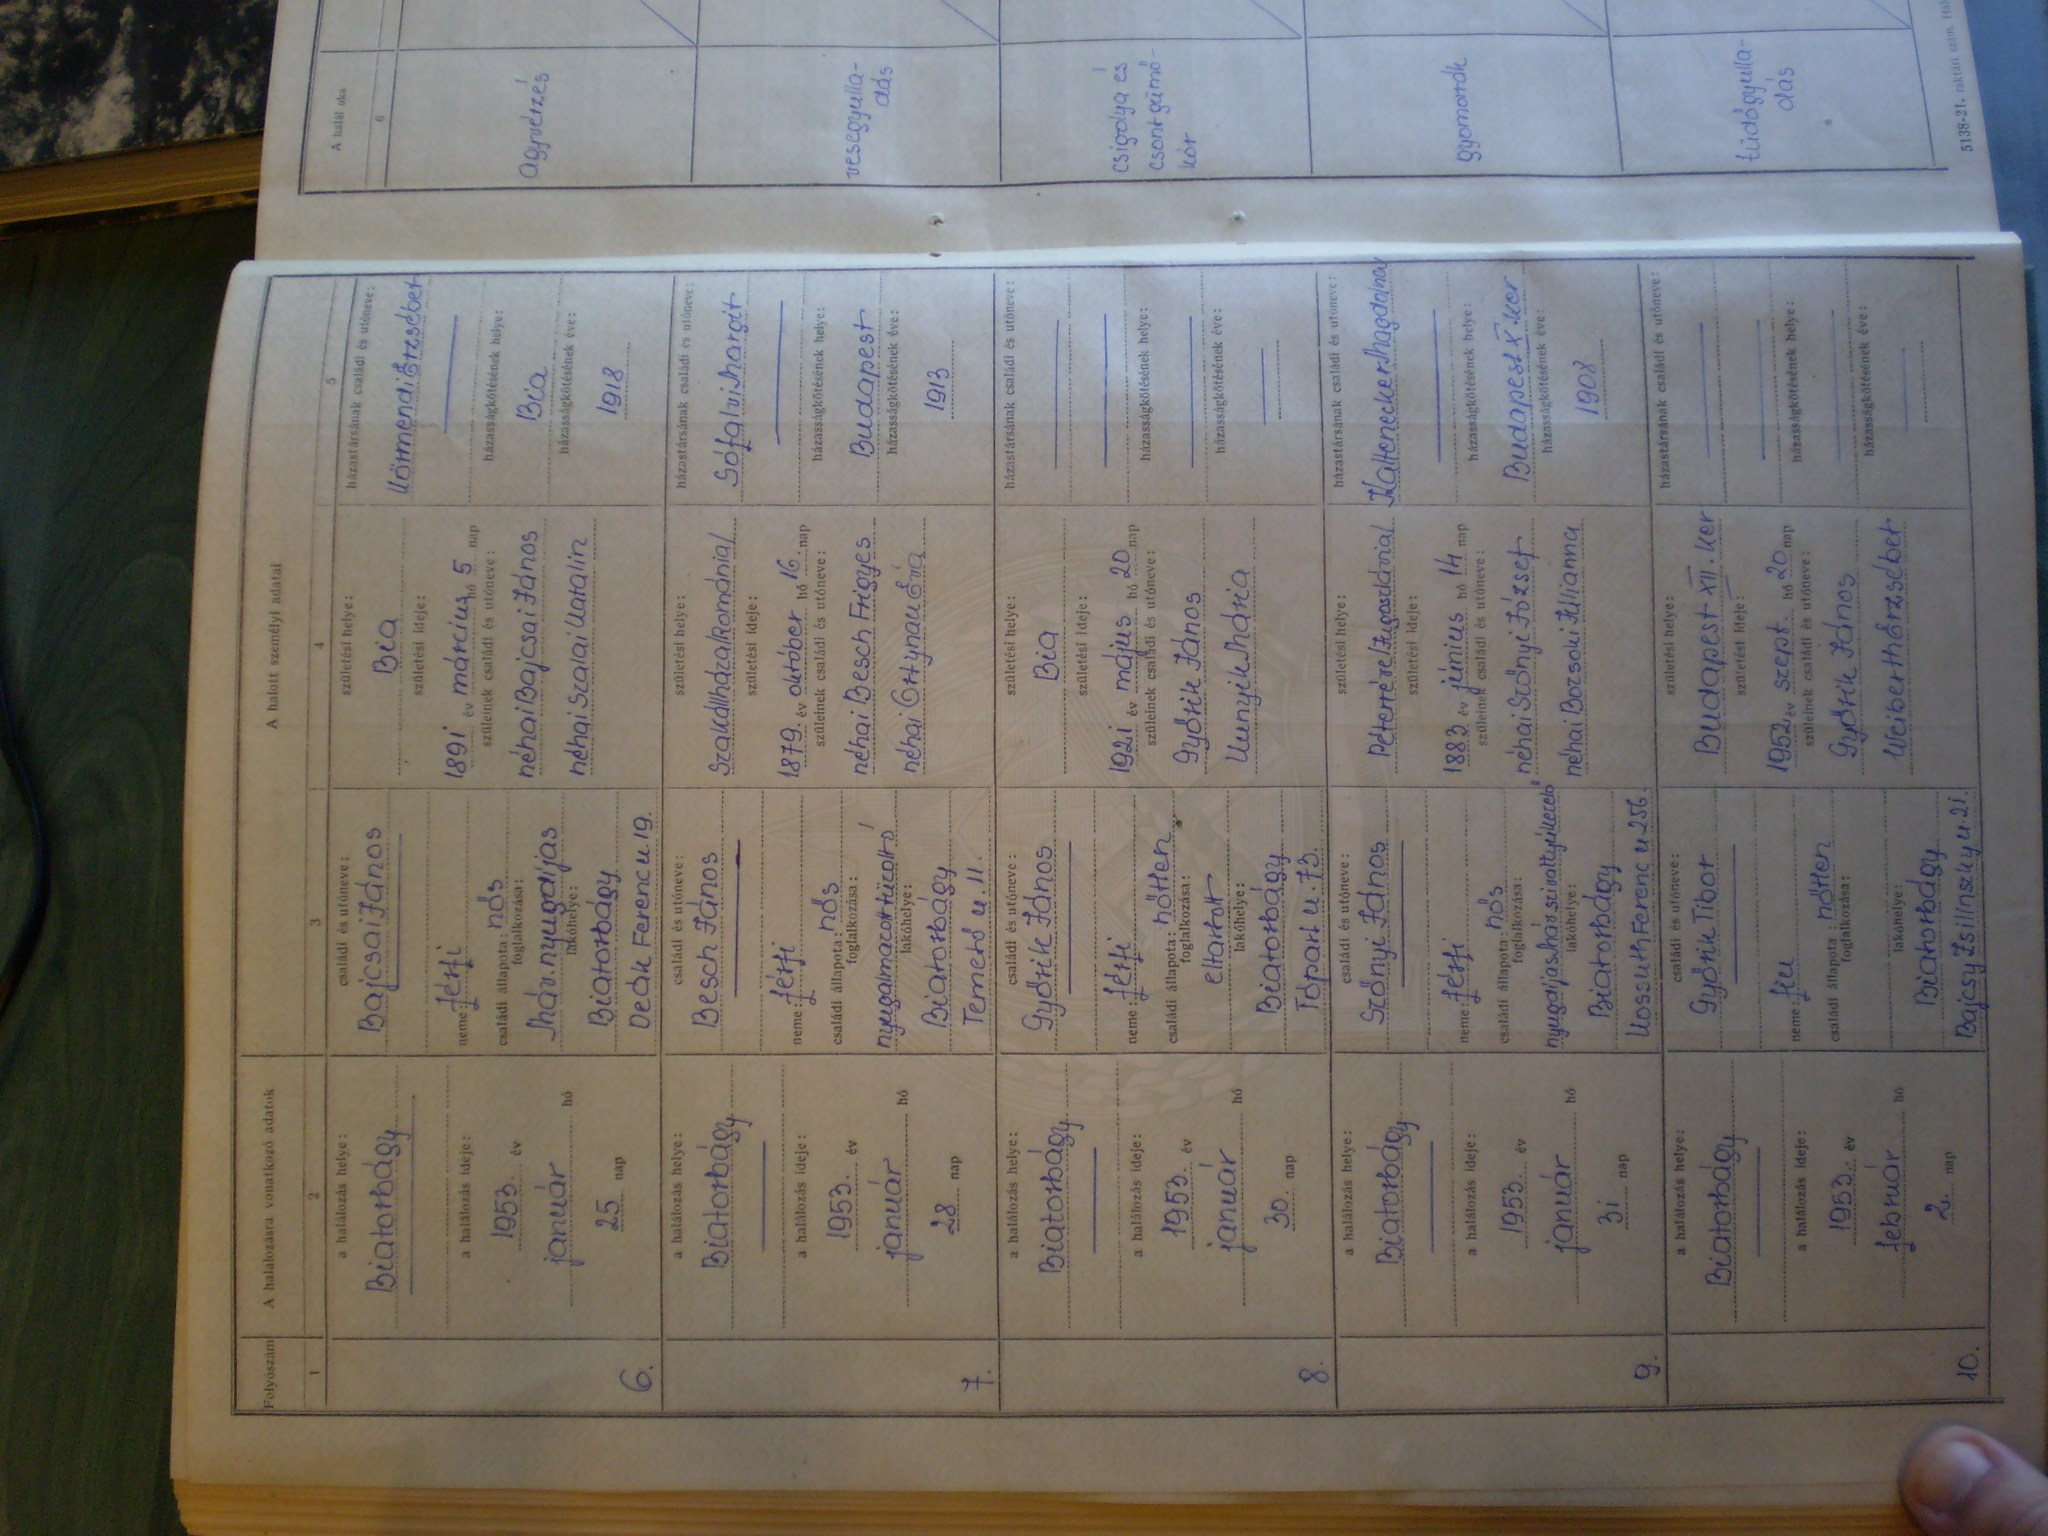 Folyószám
A halálozásra vonatkozó adatok
A halott személyi adatai
A halál oka
1
2
3
4
5
6
6.
a halálozás helye:
Biatorbágy
a halálozás ideje:
1953. év
január hó
25 nap
családi és utóneve:
Bajcsai János
neme: férfi
családi állapota: nős
foglalkozása:
Máv. nyugdíjas
lakóhelye:
Biatorbágy
Deák Ferenc u. 19.
születési helye:
Bia
születési ideje:
1891 év március hó 5 nap
szüleinek családi és utóneve:
néhai Bajcsai János
néhai Szalai Katalin
házastársának családi és utóneve:
Körmendi Erzsébet
házasságkötésének helye:
Bia
házasságkötésének éve:
1918
agyvérzés
7.
a halálozás helye:
Biatorbágy
a halálozás ideje:
1953. év
január hó
28 nap
családi és utóneve:
Besch János
neme: férfi
családi állapota: nős
foglalkozása:
lakóhelye:
Biatorbágy
Temető u. 11.
születési helye:
Szakállháza/Románia/
születési ideje:
1879. év október hó 16. nap
szüleinek családi és utóneve:
néhai Besch Frigyes
néhai Ottynau Éva
házastársának családi és utóneve:
Sófalvi Margit
házasságkötésének helye:
Budapest
házasságkötésének éve:
1913
vesegyulla-
dás
8.
a halálozás helye:
Biatorbágy
a halálozás ideje:
1953. év
január hó
30. nap
családi és utóneve:
Győrik János
neme: férfi
családi állapota: nőtlen
foglalkozása:
eltartott
lakóhelye:
Biatorbágy
Tópart u. 73.
születési helye:
Bia
születési ideje:
1921 év május hó 20 nap
szüleinek családi és utóneve:
Győrik János
Kunyik Mária
házastársának családi és utóneve:
házasságkötésének helye:
házasságkötésének éve:
csigolya és
csontgümő-
kór
9.
a halálozás helye:
Biatorbágy
a halálozás ideje:
1953. év
január hó
31 nap
családi és utóneve:
Szőnyi János
neme: férfi
családi állapota: nős
foglalkozása:
lakóhelye:
Biatorbágy
Kossuth Ferenc u 256.
születési helye:
Péterréve/Jugoszlávia/
születési ideje:
1883 év június hó 14 nap
szüleinek családi és utóneve:
néhai Szőnyi József
néhai Borsoki Julianna
házastársának családi és utóneve:
Kaltenecker Magdolna
házasságkötésének helye:
Budapest X. ker
házasságkötésének éve:
1908
gyomorrák
10.
a halálozás helye:
Biatorbágy
a halálozás ideje:
1953. év
február hó
2. nap
családi és utóneve:
Győrik Tibor
neme: fiu
családi állapota: nőtlen
foglalkozása:
lakóhelye:
Biatorbágy
Bajcsy Zsilinszky u. 21.
születési helye:
Budapest XII. ker
születési ideje:
1952 év szept. hó 20 nap
szüleinek családi és utóneve:
Győrik János
Weiberth Erzsébet
házastársának családi és utóneve:
házasságkötésének helye:
házasságkötésének éve:
tüdőgyulla-
dás
5138-21. raktári szám.